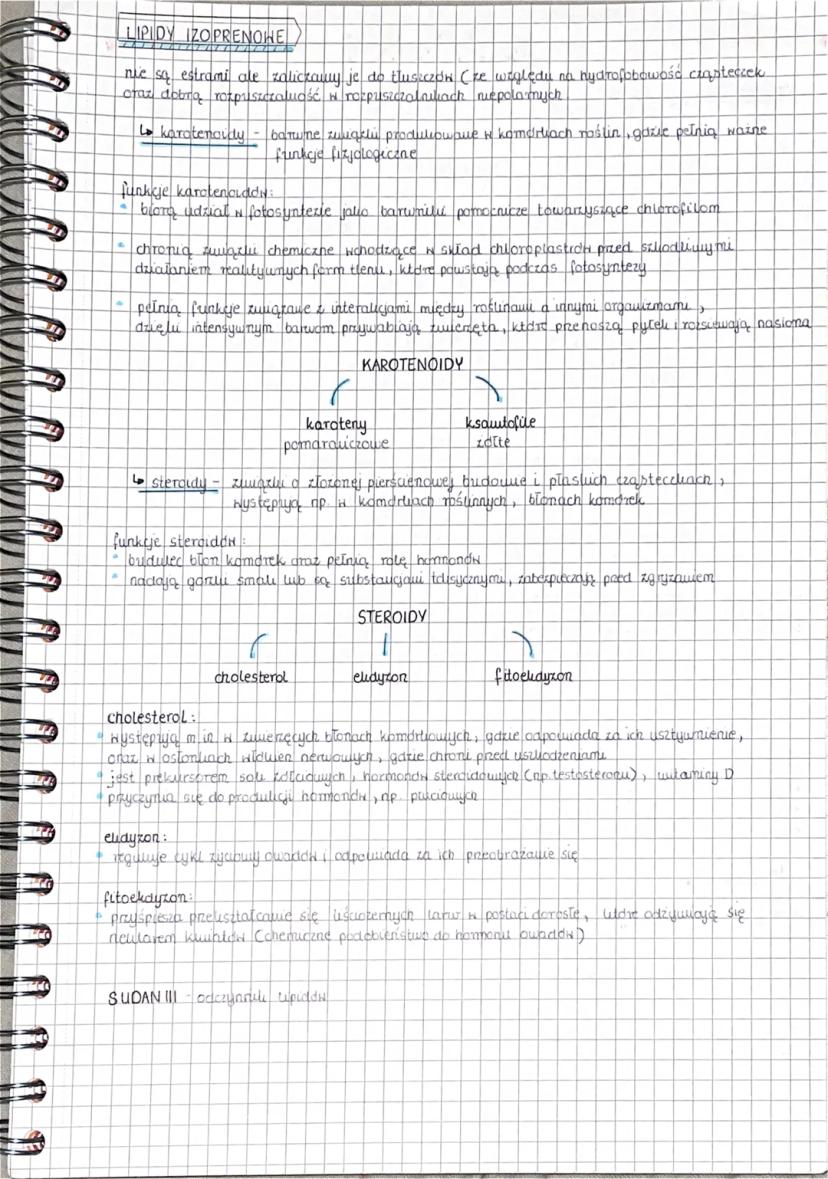 LIPIDY IZOPRENOWE
nie są estrami ale zaliczamy je do tłuszczów (ze względu na hydrofobowość cząsteczek
oraz dobrą rozpuszczalność w rozpuszczalnikach niepolarnych
↳ karotenoidy - barwne związki produkowane w komórkach roślin, gdzie pełnią ważne
funkcje fizjologiczne
funkcje karotenoidów:
• biorą udział w fotosyntezie jako barwniki pomocnicze towarzyszące chlorofilom
• chronią związki chemiczne wchodzące w skład chloroplastów przed szkodliwymi
działaniem reaktywnych form tlenu, które powstają podczas fotosyntezy
• pełnią funkcje związane z interakcjami między roślinami a innymi organizmami,
dzięki intensywnym barwom przywabiają zwierzęta, które przenoszą pyłek i rozsiewają nasiona
KAROTENOIDY
karoteny ksantofile
pomarańczowe żółte
↳ steroidy - związki o złożonej pierścieniowej budowie i płaskich cząsteczkach,
występują np. w komórkach roślinnych, błonach komórek
funkcje steroidów:
• budulec błon komórek oraz pełnią rolę hormonów
• nadają gorzki smak lub są substancjami toksycznymi, zabezpieczają przed zgryzaniem
STEROIDY
cholesterol ekdyzon fitoekdyzon
cholesterol:
• występują m.in w zwierzęcych błonach komórkowych, gdzie odpowiada za ich usztywnienie,
oraz w osłonkach włókien nerwowych, gdzie chroni przed uszkodzeniami
• jest prekursorem soli żółciowych, hormonów steroidowych (np. testosteronu), witaminy D
• przyczynia się do produkcji hormonów, np. płciowych
ekdyzon:
• reguluje cykl życiowy owadów i odpowiada za ich przeobrażanie się
fitoekdyzon:
• przyśpiesza przekształcanie się liściożernych larw w postaci dorosłe, które odżywiają się
nektarem kwiatów (chemiczne podobieństwo do hormonu owadów)
SUDAN III - odczynnik lipidów